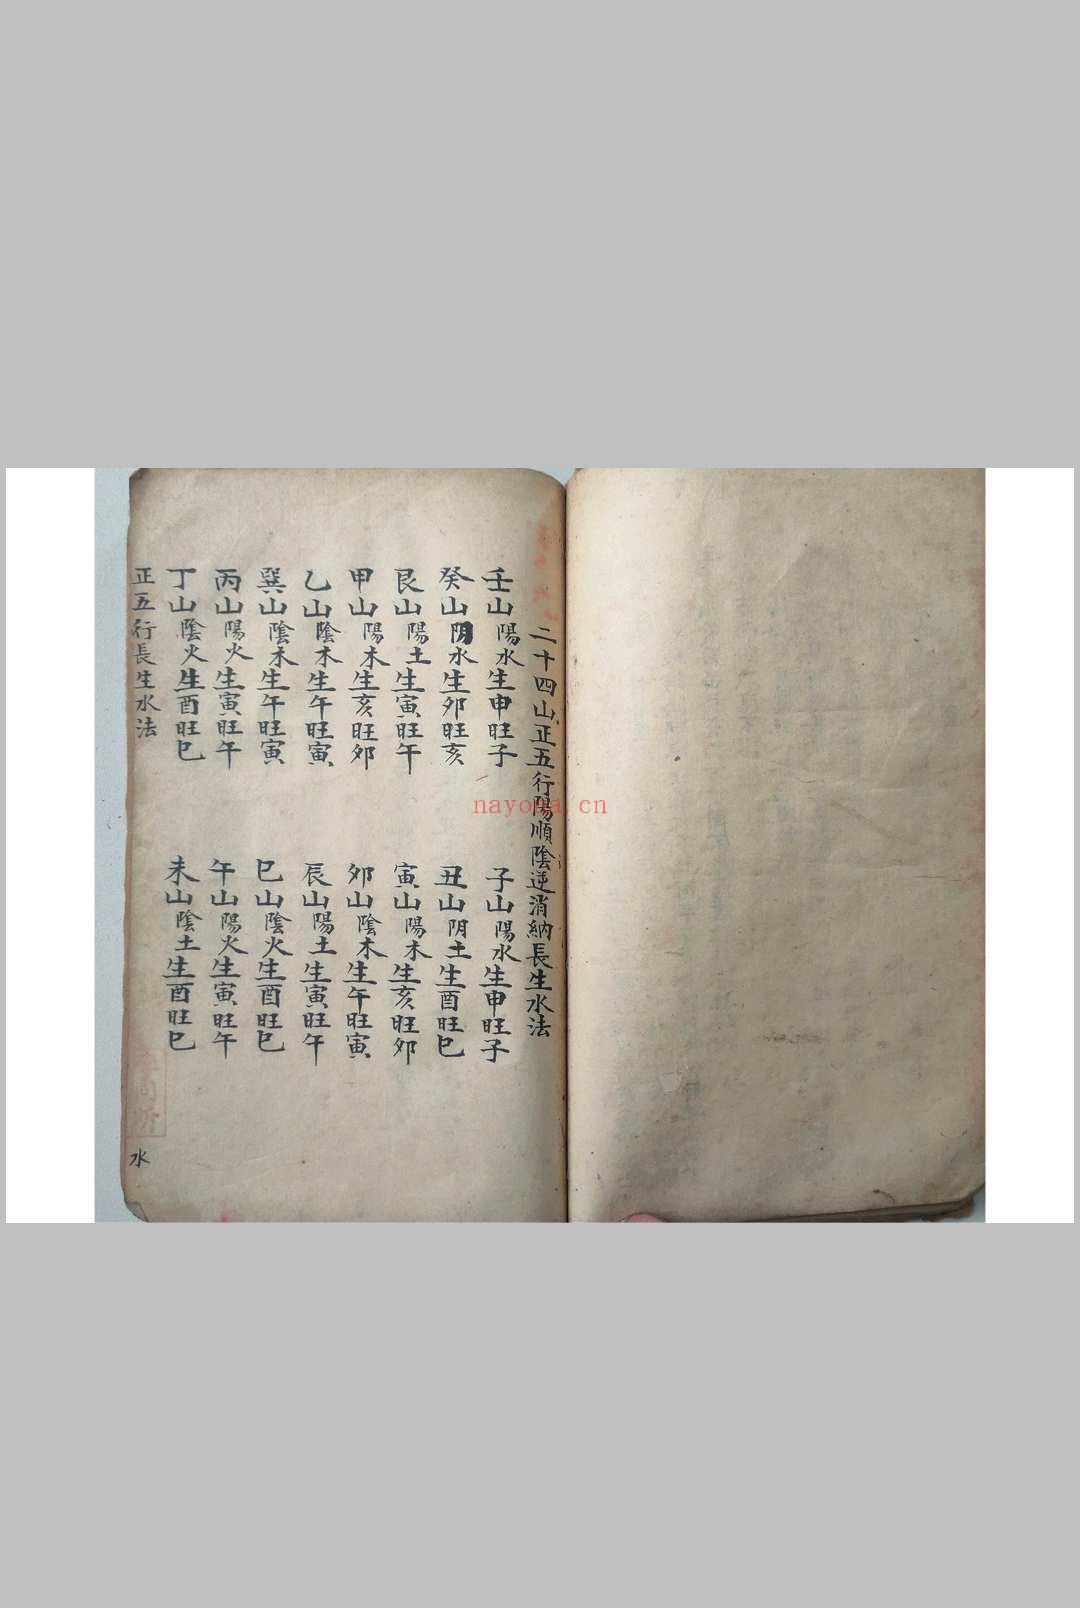 二十四山正五行陽順陰逆消納長生水法
壬山陽水生申旺子
子山陽水生申旺子
癸山阴水生卯旺亥
丑山阴土生酉旺巳
艮山陽土生寅旺午
寅山陽木生亥旺卯
甲山陽木生亥旺卯
卯山陰木生午旺寅
乙山陰木生午旺寅
辰山陽土生寅旺午
巽山陰木生午旺寅
巳山陰火生酉旺巳
丙山陽火生寅旺午
午山陽火生寅旺午
丁山陰火生酉旺巳
未山陰土生酉旺巳
正五行長生水法
水
nayona.cn